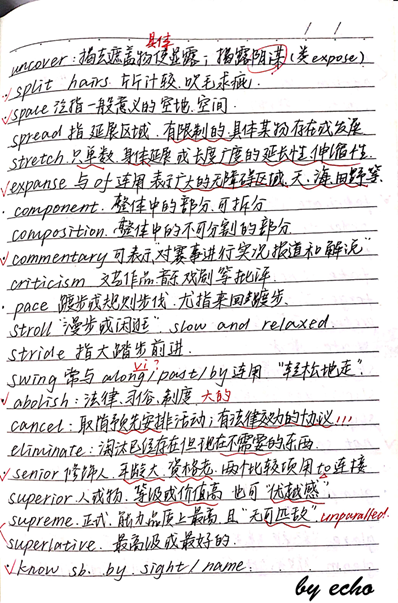 具体
uncover: 揭去遮盖物使显露; 揭露阴谋 (类expose)
split hairs. 斤斤计较. 吹毛求疵.
space 泛指一般意义的空地. 空间.
spread 指延展区域. 有限制的. 具体某物存在或发展
stretch. 只单数. 身体延展或长度广度的延长性. 伸缩性.
expanse 与of连用表示广大的无障碍区域. 天、海、田野等.
component. 整体中的部分. 可拆分
composition. 整体中的不可分割的部分
commentary 可表示“对赛事进行实况报道和解说”
criticism 文艺作品. 音乐戏剧等批评.
pace 踱步或规则步伐. 尤指来回踱步.
stroll “漫步或闲逛”. slow and relaxed.
stride 指大踏步前进.
vi?
swing 常与along/past/by连用 “轻松地走”
abolish: 法律、习俗、制度 大的
cancel: 取消预先安排活动; 有法律效力的协议!!!
eliminate: 淘汰已经存在但现在不需要的东西.
senior 修饰人. 年龄大. 资格老. 两个比较项用to连接
superior 人或物. 等级或价值高. 也可“优越感”;
supreme. 正式. 能力品质上最高. 且“无可匹敌”. unparalled.
superlative. 最高级或最好的.
know sb. by sight/name.
by echo